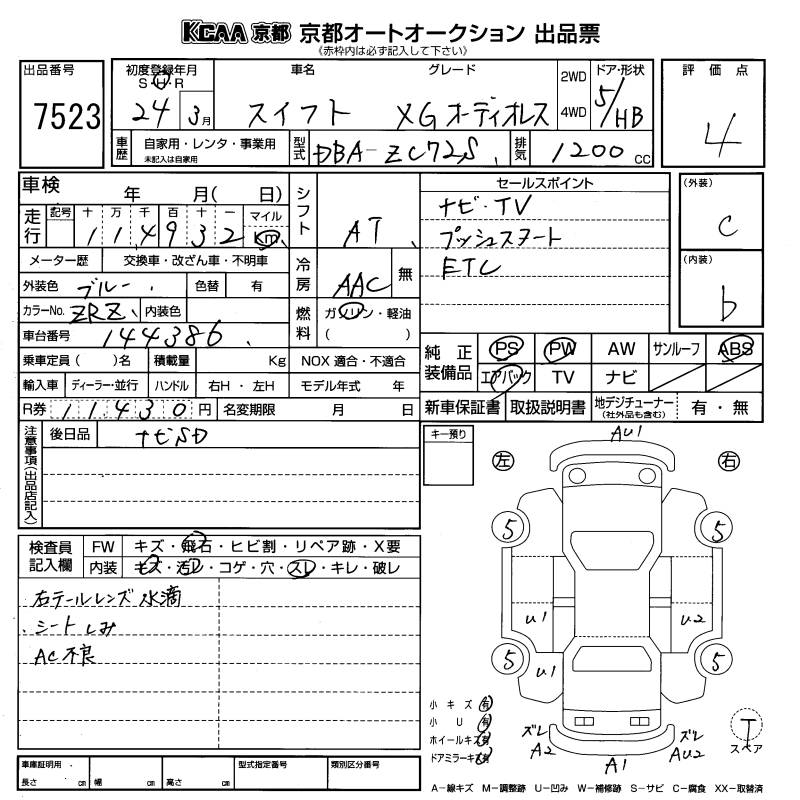 KCAA 京都 京都オートオークション 出品票
《赤枠内は必ず記入して下さい》
出品番号 初度登録年月 車名 グレード 2WD ドア・形状 評価点
S・H・R
7523 24年 3月 スイフト XG オーディオレス 4WD 5/HB 4
車歴 自家用・レンタ・事業用 型式 DBA-ZC72S 排気 1200 cc
未記入は自家用
車検 年 月( 日) シフト AT セールスポイント (外装)
ナビ・TV
走行 記号 十 万 千 百 十 一 マイル
114932 Km プッシュスタート C
メーター歴 交換車・改ざん車・不明車 冷房 AAC 無 ETC (内装)
外装色 ブルー 色替 有 b
カラーNo. ZRZ 内装色 燃料 ガソリン・軽油
( )
車台番号 144386
乗車定員( )名 積載量 Kg NOX 適合・不適合 純正装備品 PS PW AW サンルーフ ABS
輸入車 ディーラー・並行 ハンドル 右H・左H モデル年式 年 エアバック TV ナビ
R券 11430 円 名変期限 月 日 新車保証書 取扱説明書 地デジチューナー 有・無
(社外品も含む)
注意事項(出品店記入) 後日品 ナビSD キー預り AU1
左 右
5 5
検査員記入欄 FW キズ・飛石・ヒビ割・リペア跡・X要
内装 キズ・汚レ・コゲ・穴・スレ・キレ・破レ
右テールレンズ水滴 U1 U2
シートしみ
AC不良 5 U1 5
小キズ 有
小U 有
ホイールキズ 有 ズレ ズレ T
ドアミラーキズ 有 A2 A1 AU2 スペア
車庫証明用 型式指定番号 類別区分番号
長さ cm 幅 cm 高さ cm
A-線キズ M-調整跡 U-凹み W-補修跡 S-サビ C-腐食 XX-取替済